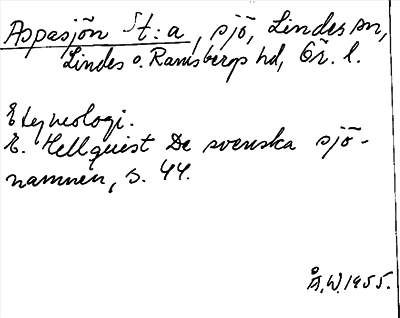 Aspasjön St:a, sjö, Lindes sn,
Lindes o. Ramsbergs hd, Ör. l.
Etymologi.
E. Hellquist De svenska sjö-
namnen, s. 44.
Å.W. 1955.